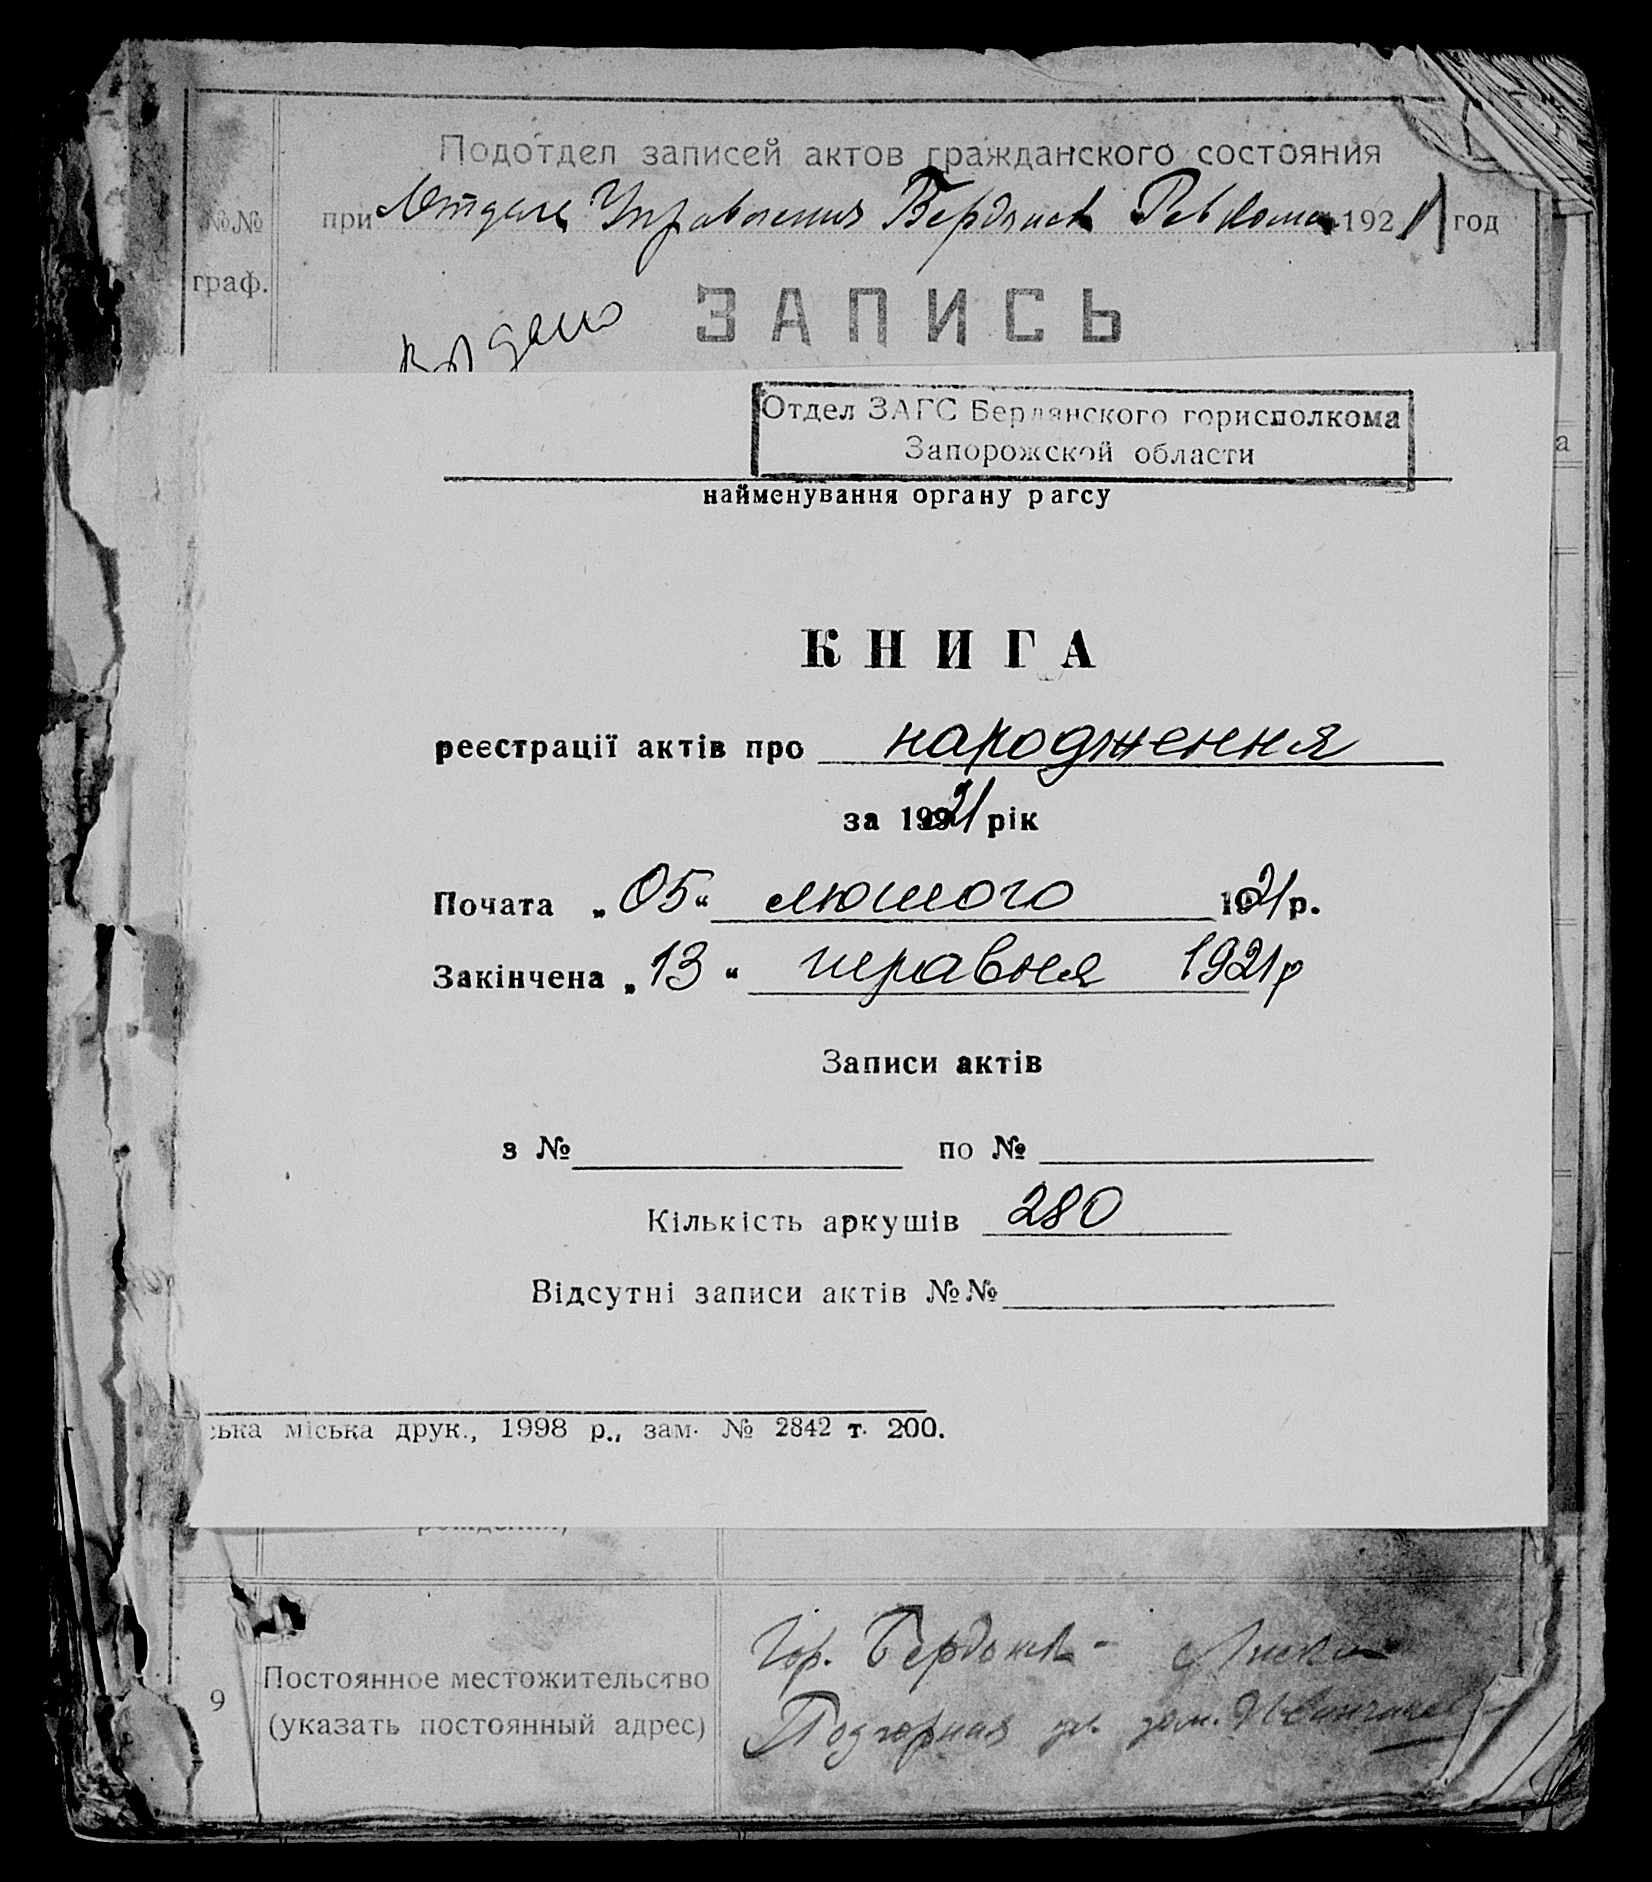 Подотдел записей актов гражданского состояния
№№ при Отделе Управления Бердянск Ревкома 1921 год
граф.
Выдано
ЗАПИСЬ
Отдел ЗАГС Бердянского горисполкома
Запорожской области
найменування органу рагсу
КНИГА
реєстрації актів про народження
за 1921 рік
Почата „05“ лютого 1921 р.
Закінчена „13“ травня 1921 р
Записи актів
з № по №
Кількість аркушів 280
Відсутні записи актів №№
ська міська друк., 1998 р., зам. № 2842 т. 200.
рождения)
Гор. Бердянск - Лиски
9 Постоянное местожительство
(указать постоянный адрес)
Подгорная ул. дом.